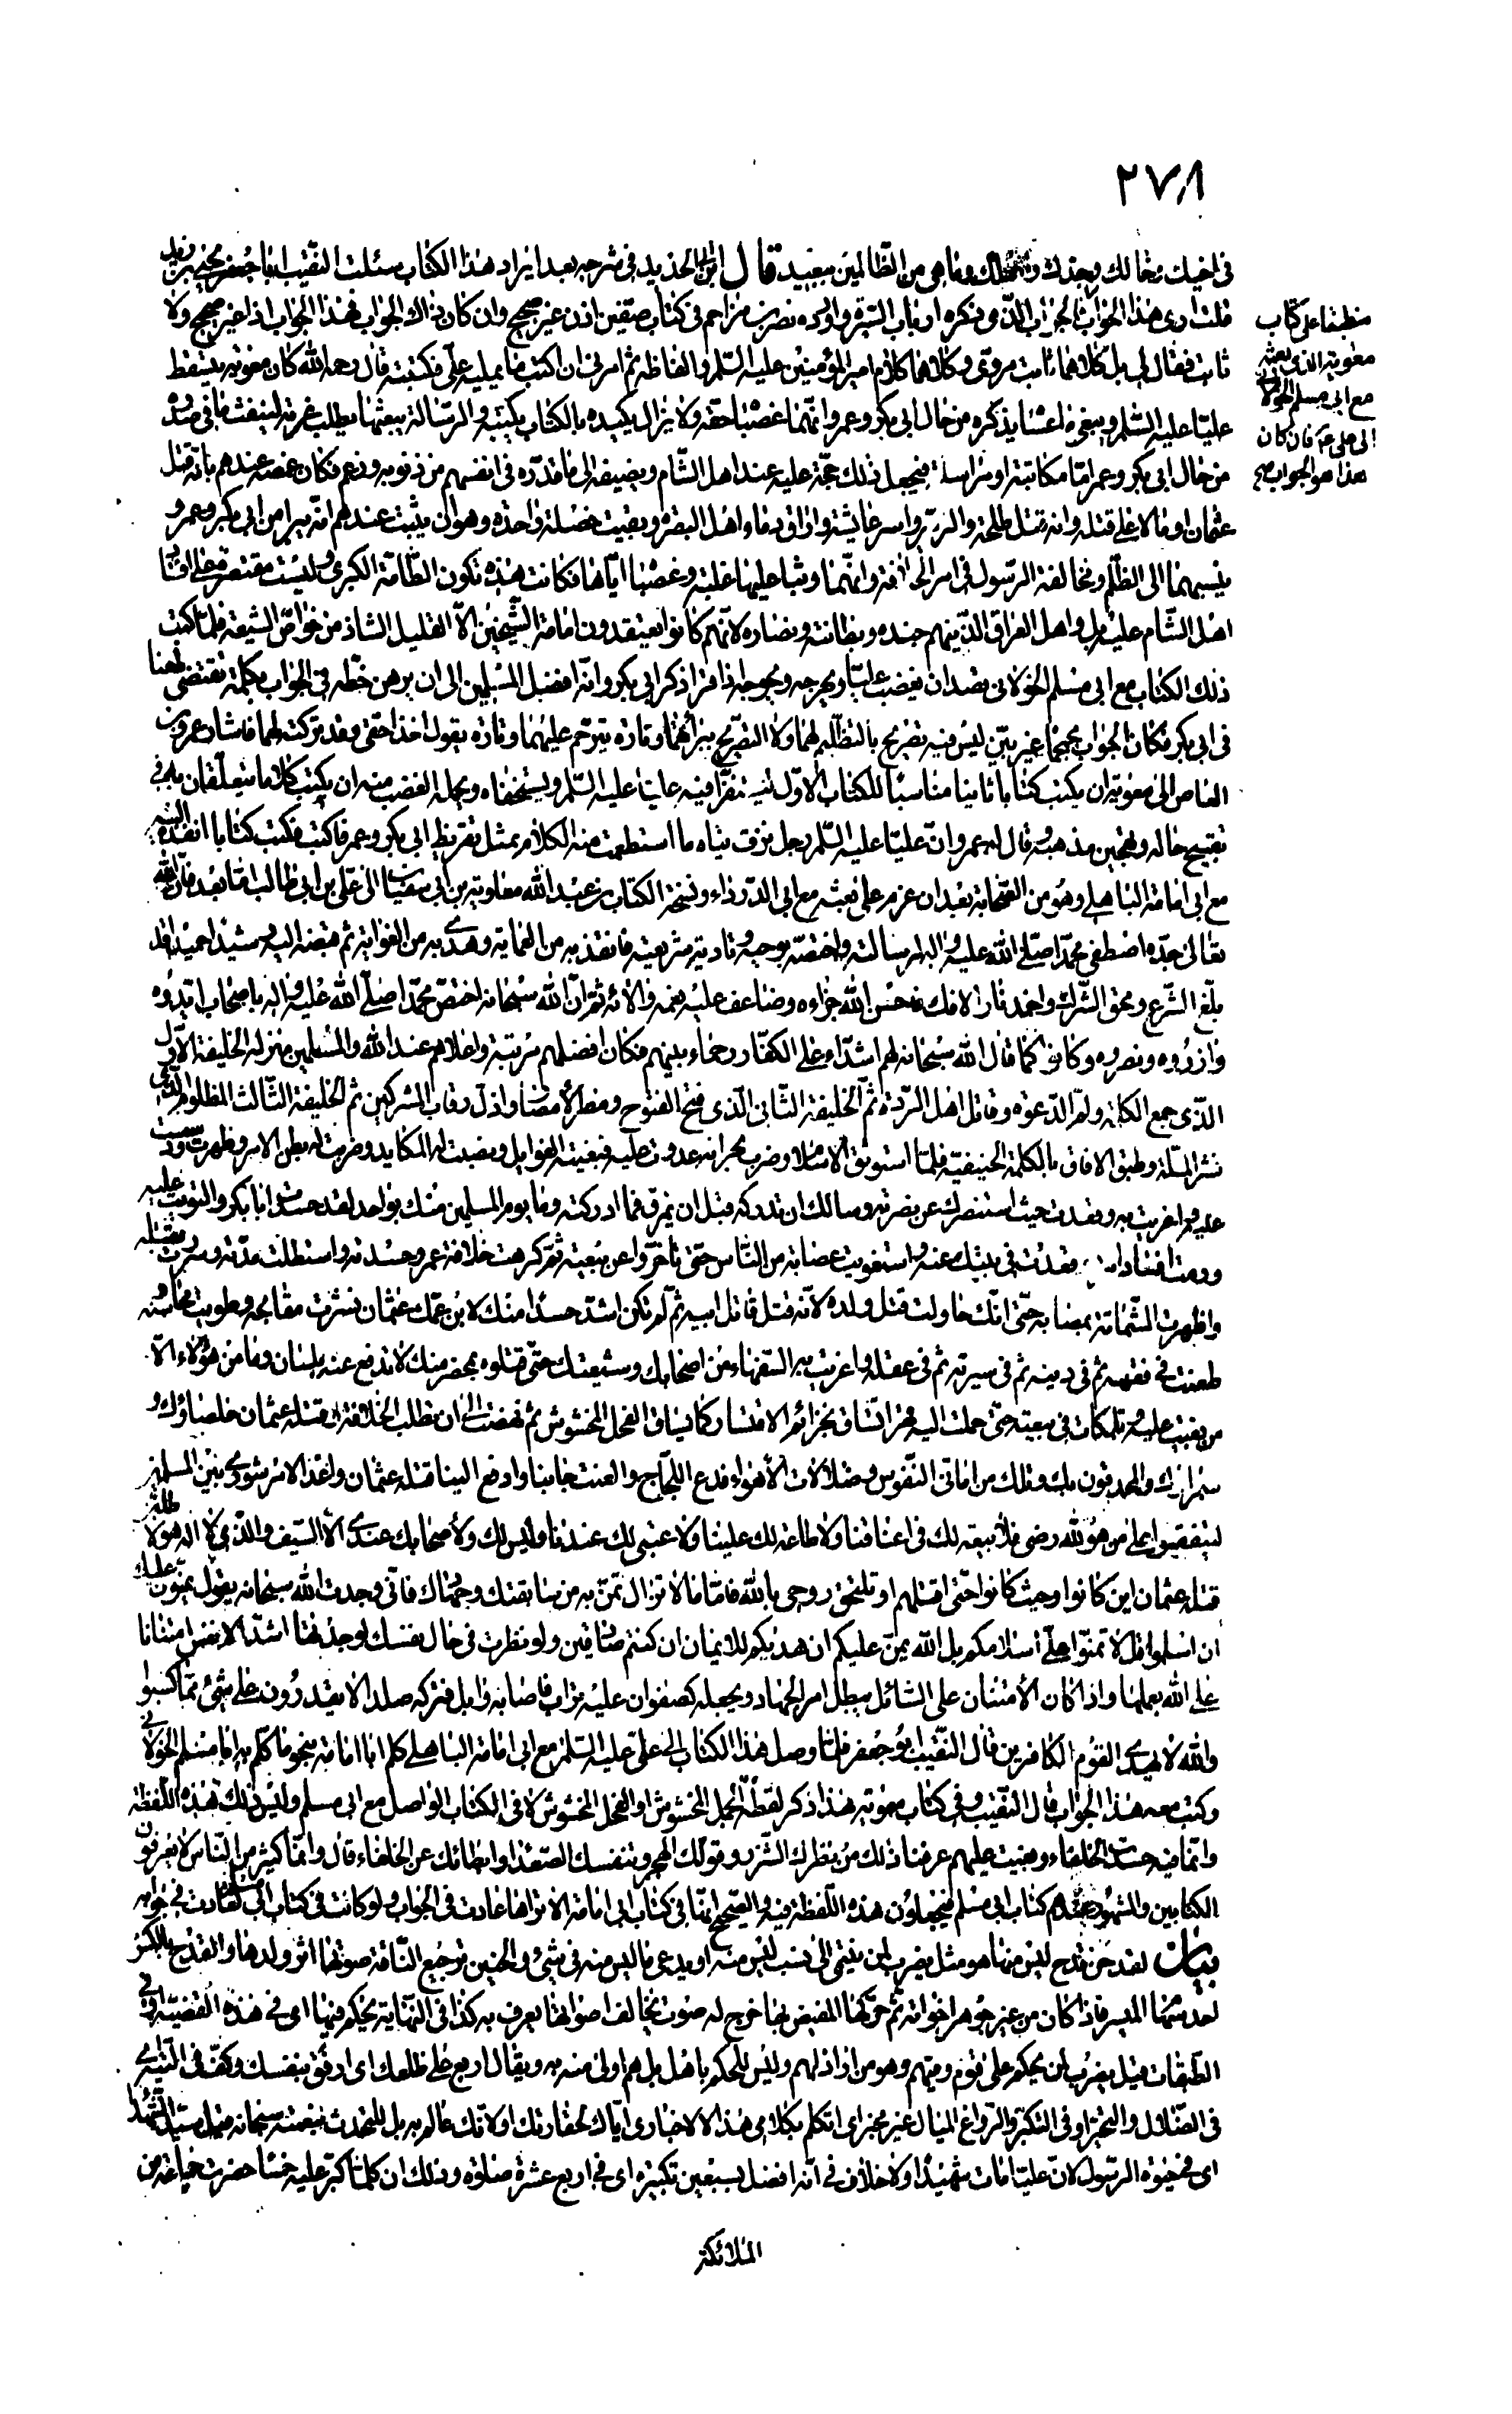 ٢٧٨
في اخيك وخالك وجدك وما هي من الظالمين ببعيد قال ابن ابي الحديد في شرحه بعد ايراد هذا الكتاب سئلت النقيب ابا جعفر يحيى بن زيد
قلت ارى هذا الجواب الجواب الذي ذكره ارباب السيرة واورده نصر بن مزاحم في كتاب صفين اذن غير صحيح وان كان ذلك الجواب فهذا الجواب اذا غير صحيح ولا
ثابت فقال لي بل كلاهما ثابت مروي وكلاهما كلام امير المؤمنين عليه السلم والفاظه ثم امرني ان اكتب ما يمليه علي فكتبته قال رحمه الله كان معوية يتسقط
عليا عليه السلم ويبغي ما عساه يذكره من حال ابي بكر وعمر وانهما غصباه حقه ولا يزال يكيده بالكتاب يكتبه والرسالة يبعثها يطلب غرته لينفث ما في صدره
من حال ابي بكر وعمر اما مكاتبة او مراسلة فيجعل ذلك حجة عليه عند اهل الشام ويضيفه الى ما قدره في انفسهم من ذنوبه وزعم فكان غمصه عندهم بانه قتل
عثمان او مالا على قتله وانه قتل طلحة والزبير واسر عايشة واراق دماء اهل البصرة وبقيت خصلة واحدة وهو ان يثبت عندهم انه يبرا من ابي بكر وعمر و
ينسبهما الى الظلم ومخالفة الرسول في امر الخلافة وانهما وثبا عليها غلبة وغصباه اياها فكانت هذه تكون الطامة الكبرى وليست مقتصرة على افساد
اهل الشام عليه بل واهل العراق الذينهم جنده وبطانته وانصاره لانهم كانوا يعتقدون امامة الشيخين الا القليل الشاذ من خواص الشيعة فلما كتب
ذلك الكتاب مع ابي مسلم الخولاني قصد ان يغضب عليا ويحرجه ويحوجه اذا قرا ذكر ابي بكر وانه افضل المسلمين الى ان يرهن خطه في الجواب بكلمة تقتضي طعنا
في ابي بكر فكان الجواب مجمجما غير بين ليس فيه تصريح بالتظليم لهما ولا التصريح ببراءتهما وتارة يترحم عليهما وتارة يقول اخذا حقي وقد تركته لهما فاشار عمرو بن
العاص الى معوية ان يكتب كتابا ثانيا مناسبا للكتاب الاول ليستفزا فيه عليا عليه السلم ويستخفاه ويحمله الغضب منه ان يكتب كلاما يتعلقان به في
تقبيح حاله وتهجين مذهبه وقال له عمرو ان عليا عليه السلم رجل نزق تياه ما استطعمت منه الكلام بمثل تقريظ ابي بكر وعمر فاكتب فكتب كتابا انفذه اليه
مع ابي امامة الباهلي وهو من الصحابة بعد ان عزم على بعثه مع ابي الدرداء ونسخة الكتاب من عبد الله معاوية بن ابي سفيان الى علي بن ابي طالب اما بعد فان الله
تعالى جده اصطفى محمدا صلى الله عليه واله لرسالته واختصه بوحيه وتادية شريعته فانقذ به من العماية وهدى به من الغواية ثم قبضه اليه رشيدا حميدا قد
بلغ الشرع ومحق الشرك واخمد نار الافك فاحسن الله جزاءه وضاعف عليه نعمه والائه ثم ان الله سبحانه اختص محمدا صلى الله عليه واله باصحاب ايدوه
وازروه ونصروه وكانوا كما قال الله سبحانه لهم اشداء على الكفار رحماء بينهم فكان افضلهم مرتبة واعلاهم عند الله والمسلمين منزلة الخليفة الاول
الذي جمع الكلمة ولم الدعوة وقاتل اهل الردة ثم الخليفة الثاني الذي فتح الفتوح ومصر الامصار واذل رقاب المشركين ثم الخليفة الثالث المظلوم الذي
نشر الملة وطبق الافاق بالكلمة الحنيفية فلما استوثق الاسلام وضرب بجرانه عدوت عليه فبغيته الغوايل ونصبت له المكايد وضربت له بطن الامر وظهره ودسست
عليه واغريت به وقعدت حيث استنصرك عن نصرته وسالك ان تدركه قبل ان يمزق فما ادركته وما يوم المسلمين منك بواحد لقد حسدت ابا بكر والتويت عليه
ورمت افساد امره وقعدت في بيتك عنه واستغويت عصابة من الناس حتى تاخروا عن بيعته ثم كرهت خلافة عمر وحسدته واستطلت مدته وسررت بقتله
واظهرت الشماتة بمصابه حتى انك حاولت قتل ولده لانه قتل قاتل ابيه ثم لم تكن اشد حسدا منك لابن عمك عثمان نشرت مقابحه وطويت محاسنه و
طعنت في فقهه ثم في دينه ثم في سيرته ثم في عقله واغريت به السفهاء من اصحابك وشيعتك حتى قتلوه بمحضر منك لا تدفع عنه بلسان وما من هؤلاء الا
من بغيت عليه وتلكات في بيعته حتى حملت اليه قهرا تساق بخزائم الاقتسار كما يساق الفحل المخشوش ثم نهضت الى ان تطلب الخلافة وقتلة عثمان خلصاؤك و
سمراؤك والمحدقون بك وتلك من اماني النفوس وضلالات الاهواء فدع اللجاج والعنت جانبا وادفع الينا قتلة عثمان واعد الامر شورى بين المسلمين
ليتفقوا على من هو لله رضى فلا بيعة لك في اعناقنا ولا طاعة لك علينا ولا عتبى لك عندنا وليس لك ولاصحابك عندي الا السيف والذي لا اله هو لاطلبن
قتلة عثمان اين كانوا وحيث كانوا حتى اقتلهم او تلتحق روحي بالله فاما ما لا تزال تمن به من سابقتك وجهادك فاني وجدت الله سبحانه يقول يمنون عليك
ان اسلموا قل لا تمنوا علي اسلامكم بل الله يمن عليكم ان هديكم للايمان ان كنتم صادقين ولو نظرت في حال نفسك لوجدتها اشد الانفس امتنانا
على الله بعملها واذا كان الامتنان على السائل يبطل امر الجهاد ويجعله كصفوان عليه تراب فاصابه وابل فتركه صلدا لا يقدرون على شيء مما كسبوا
والله لا يهدي القوم الكافرين قال النقيب ابو جعفر فلما وصل هذا الكتاب الى علي عليه السلم مع ابي امامة الباهلي كلم ابا امامة بنحو ما كلم به ابا مسلم الخولاني
وكتب معه هذا الجواب قال النقيب وفي كتاب معوية هذا ذكر لفظة الجمل المخشوش او الفحل المخشوش لا في الكتاب الواصل مع ابي مسلم وليس في ذلك هذه اللفظة
وانما فيه حسدت الخلفاء وبغيت عليهم عرفنا ذلك من نظرك الشزر وقولك الهجر وتنفسك الصعداء وابطائك عن الخلفاء قال وانما كثير من الناس لا يعرفون
الكتابين والمشهور عندهم كتاب ابي مسلم فيجعلون هذه اللفظة فيه والصحيح انها في كتاب ابي امامة الا تراها عادت في الجواب ولو كانت في كتاب ابي مسلم لعادت في جوابه
بيان لقد حن قدح ليس منها هو مثل يضرب لمن ينتمي الى نسب ليس منه او يدعي ما ليس منه في شيء والحنين ترجيع الناقة صوتها اثر ولدها والقدح بالكسر
احد سهام الميسر فاذا كان من غير جوهر اخواته ثم حركها المفيض بها خرج له صوت يخالف اصواتها يعرف به كذا في النهاية يحكم فيها اي في هذه القضية او في
الطبقات قيل يضرب لمن يحكم على قوم وفيهم وهو من اراذلهم وليس للحكم باهل بل هم اولى منه به ويقال اربع على ظلعك اي ارفق بنفسك وكف في التيه اي
في الضلال والتحير او في التكبر والرواغ الميال غير مخبر اي اتكلم بكلامي هذا لا لاخباري اياك لحقارتك او لانك عالم به بل للتحدث بنعمته سبحانه قيل سيد الشهداء
اي في حيوة الرسول لان عليا مات شهيدا ولا خلاف في انه افضل بسبعين تكبيرة اي في اربع عشرة صلوة وذلك ان كلما كبر عليه خمسا حضرت جماعة من
الملائكة
منطبقا على كتاب
معوية الذي بعثه
مع ابي مسلم الخولاني
الى علي ع فان كان
هذا هو الجواب صح